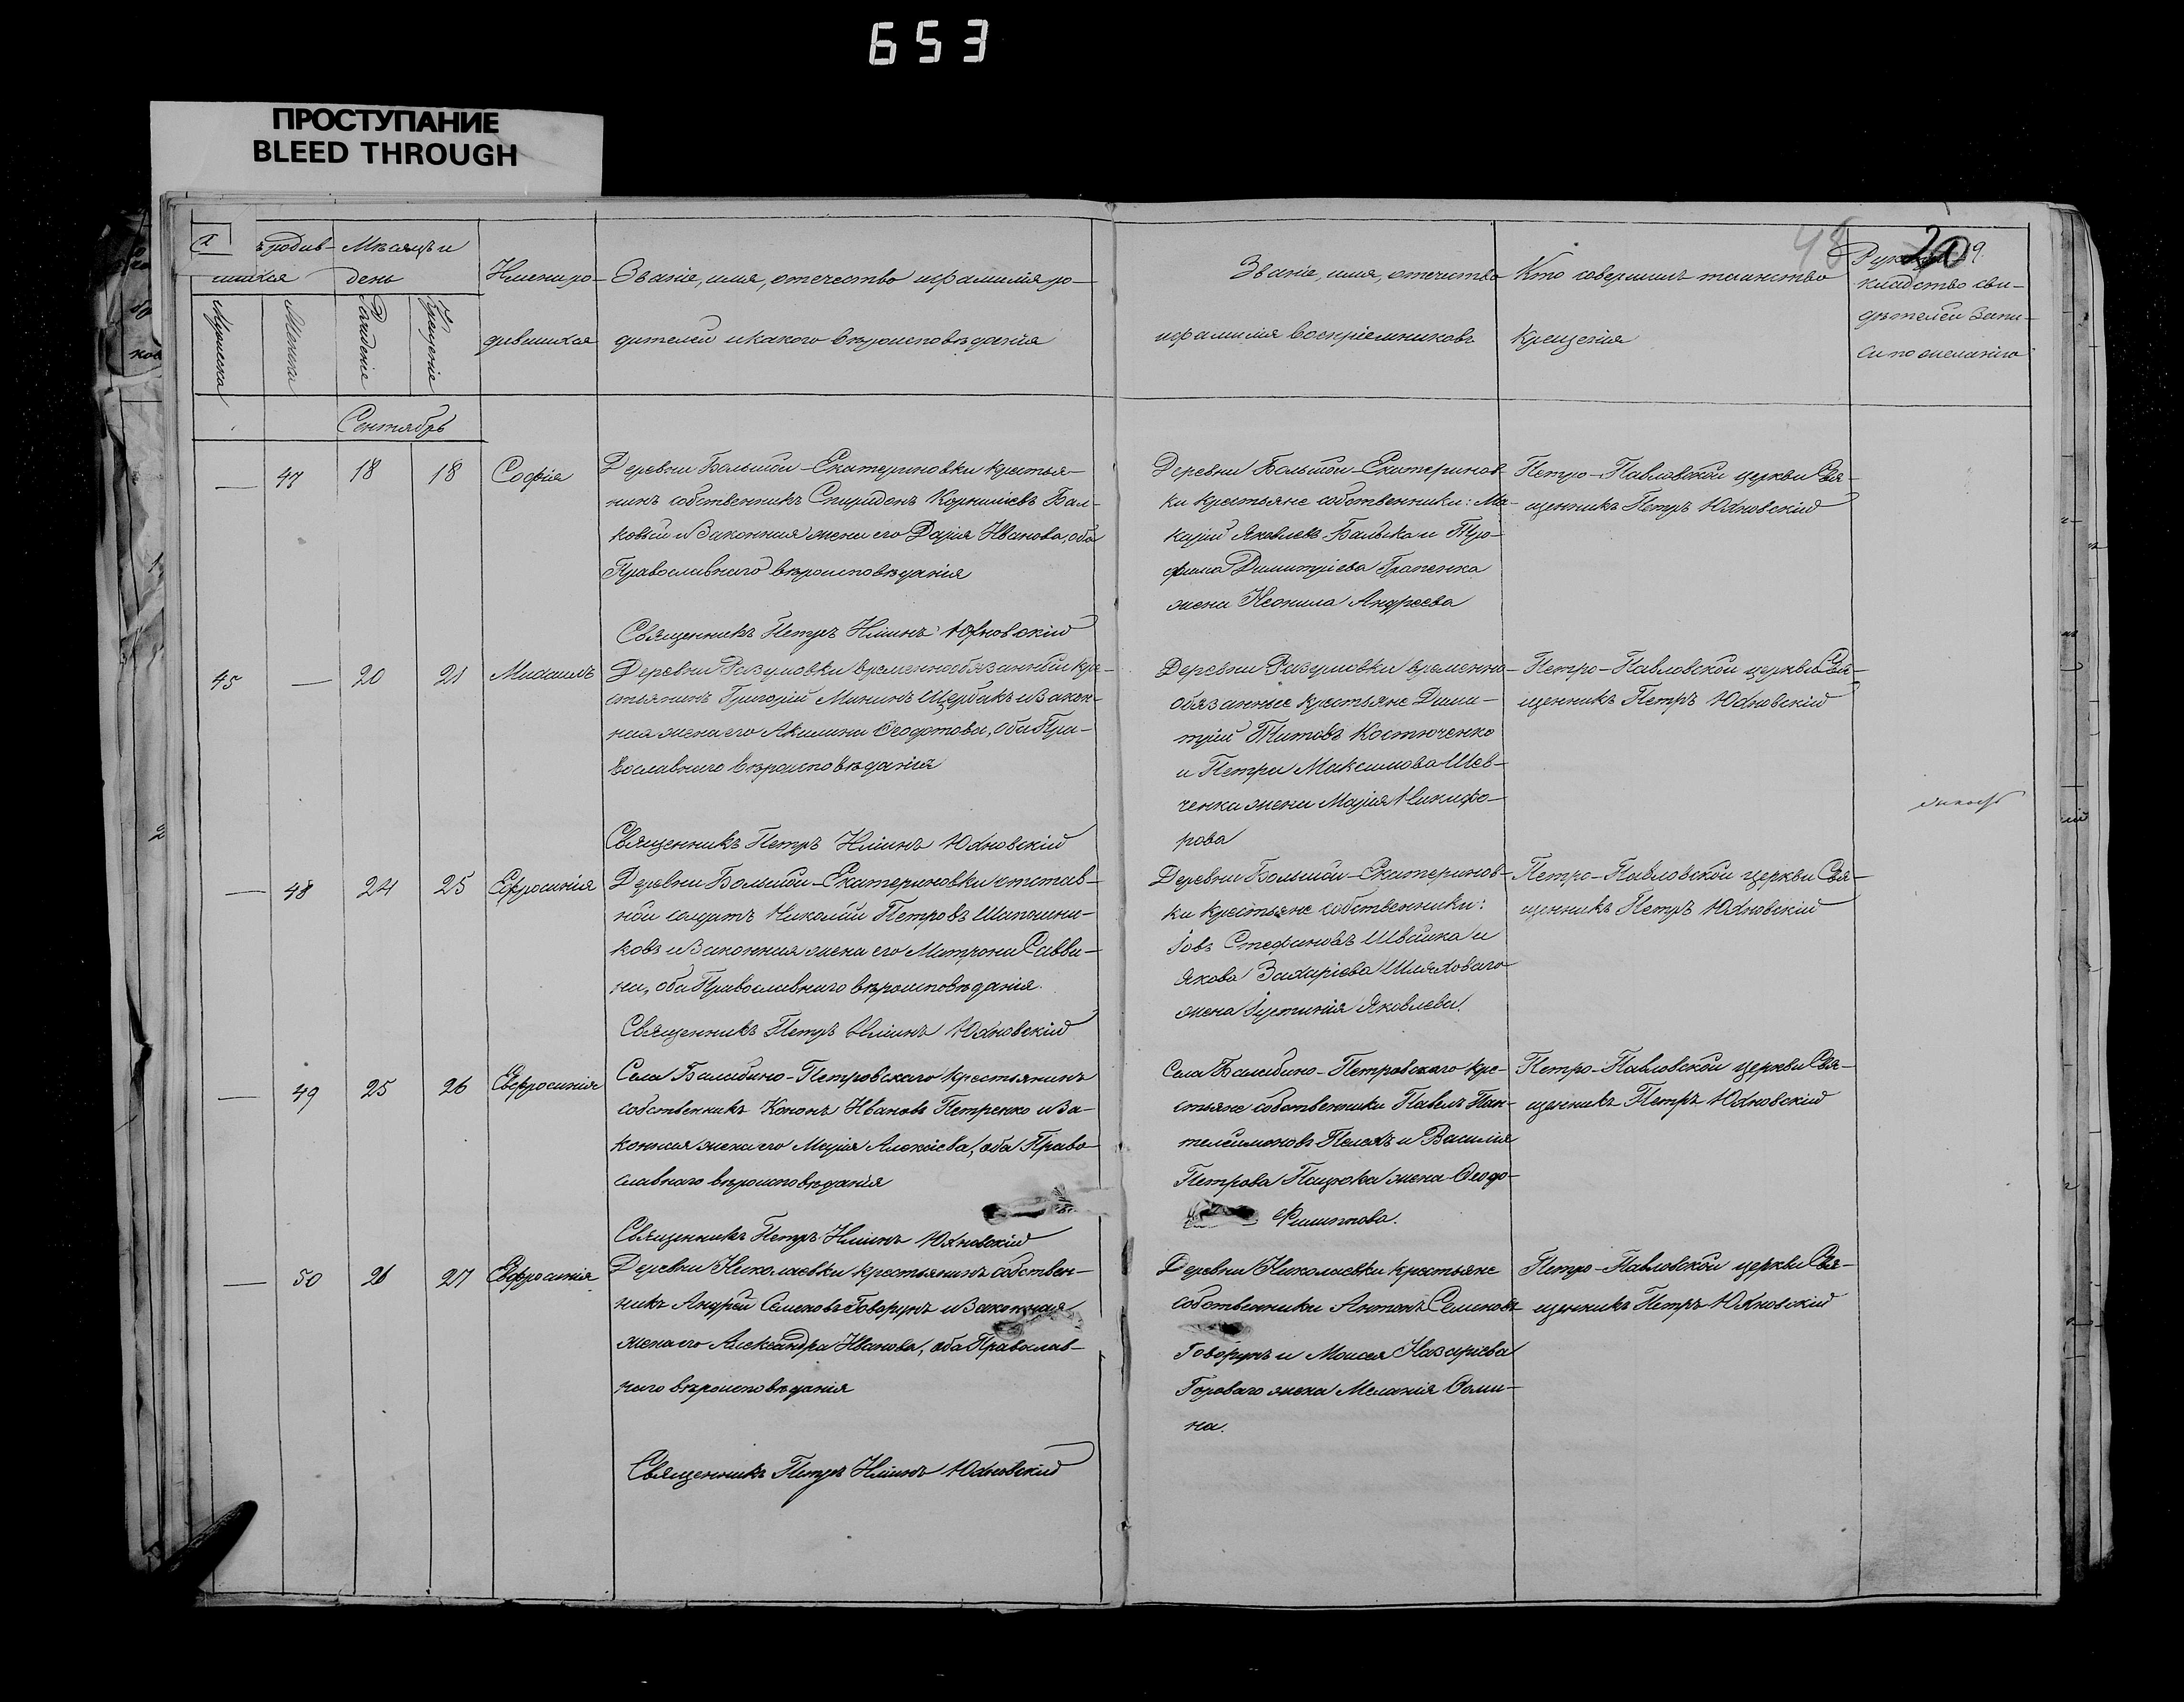 653
ПРОСТУПАНИЕ
BLEED THROUGH
родив- Мѣсяцъ и
шихся день
Мужеска
Женска
Рожденіе
Крещеніе
Имена ро-
дившихся
Званіе, имя, отечество и фамилія ро-
дителей и какого вѣроисповѣданія
Званіе, имя, отечество
и фамилія воспріемниковъ
Кто совершилъ таинство
крещенія
48
20
кладство сви-
дѣтелей запи-
си по желанію
Сентябрь
— 47 18 18 Софія
Деревни Большой-Екатериновки крестья-
нинъ собственникъ Спиридонъ Корниліевъ Бал-
ковый и законная жена его Дарія Иванова, оба
Православнаго вѣроисповѣданія
Священникъ Петръ Ильинъ Юхновскій
Деревни Большой-Екатеринов-
ки крестьяне собственники: Ма-
карій Яковлевъ Балыка и Тро-
фима Димитріева Грапенка
жена Неонила Андреева
Петро-Павловской церкви Свя-
щенникъ Петръ Юхновскій
45 — 20 21 Михаилъ
Деревни Разумовки временнообязанный кре-
стьянинъ Григорій Мининъ Щербакъ и закон-
ная жена его Акилина Ѳеодотова, оба Пра-
вославнаго вѣроисповѣданія
Священникъ Петръ Ильинъ Юхновскій
Деревни Разумовки временно-
обязанные крестьяне Дими-
трій Титовъ Костюченко
и Петра Максимова Шев-
ченка жена Марія Никифо-
рова
Петро-Павловской церкви Свя-
щенникъ Петръ Юхновскій
— 48 24 25 Евфросинія
Деревни Большой-Екатериновки отстав-
ной солдатъ Николай Петровъ Шапошни-
ковъ и законная жена его Матрона Савви-
на, оба Православнаго вѣроисповѣданія.
Священникъ Петръ Ильинъ Юхновскій
Деревни Большой-Екатеринов-
ки крестьяне собственники:
Іовъ Стефановъ Швайка и
Якова Захаріева Шляховаго
жена Іустинія Яковлева.
Петро-Павловской церкви Свя-
щенникъ Петръ Юхновскій
— 49 25 26 Евфросинія
Села Балабино-Петровскаго крестьянинъ
собственникъ Кононъ Ивановъ Петренко и за-
конная жена его Марія Алексіева, оба Право-
славнаго вѣроисповѣданія
Священникъ Петръ Ильинъ Юхновскій
Села Балабино-Петровскаго кре-
стьяне собственники Павелъ Пан-
телеимоновъ Пелехъ и Василія
Петрова Пацюка жена Ѳеодо-
Филиппова.
Петро-Павловской церкви Свя-
щенникъ Петръ Юхновскій
— 50 26 27 Евфросинія
Деревни Николаевки крестьянинъ собствен-
никъ Андрей Семеновъ Говорунъ и законная
жена его Александра Иванова, оба Православ-
наго вѣроисповѣданія
Священникъ Петръ Ильинъ Юхновскій
Деревни Николаевки крестьяне
собственники Антонъ Семеновъ
Говорунъ и Моисея Назаріева
Гороваго жена Меланія Ѳоми-
на.
Петро-Павловской церкви Свя-
щенникъ Петръ Юхновскій